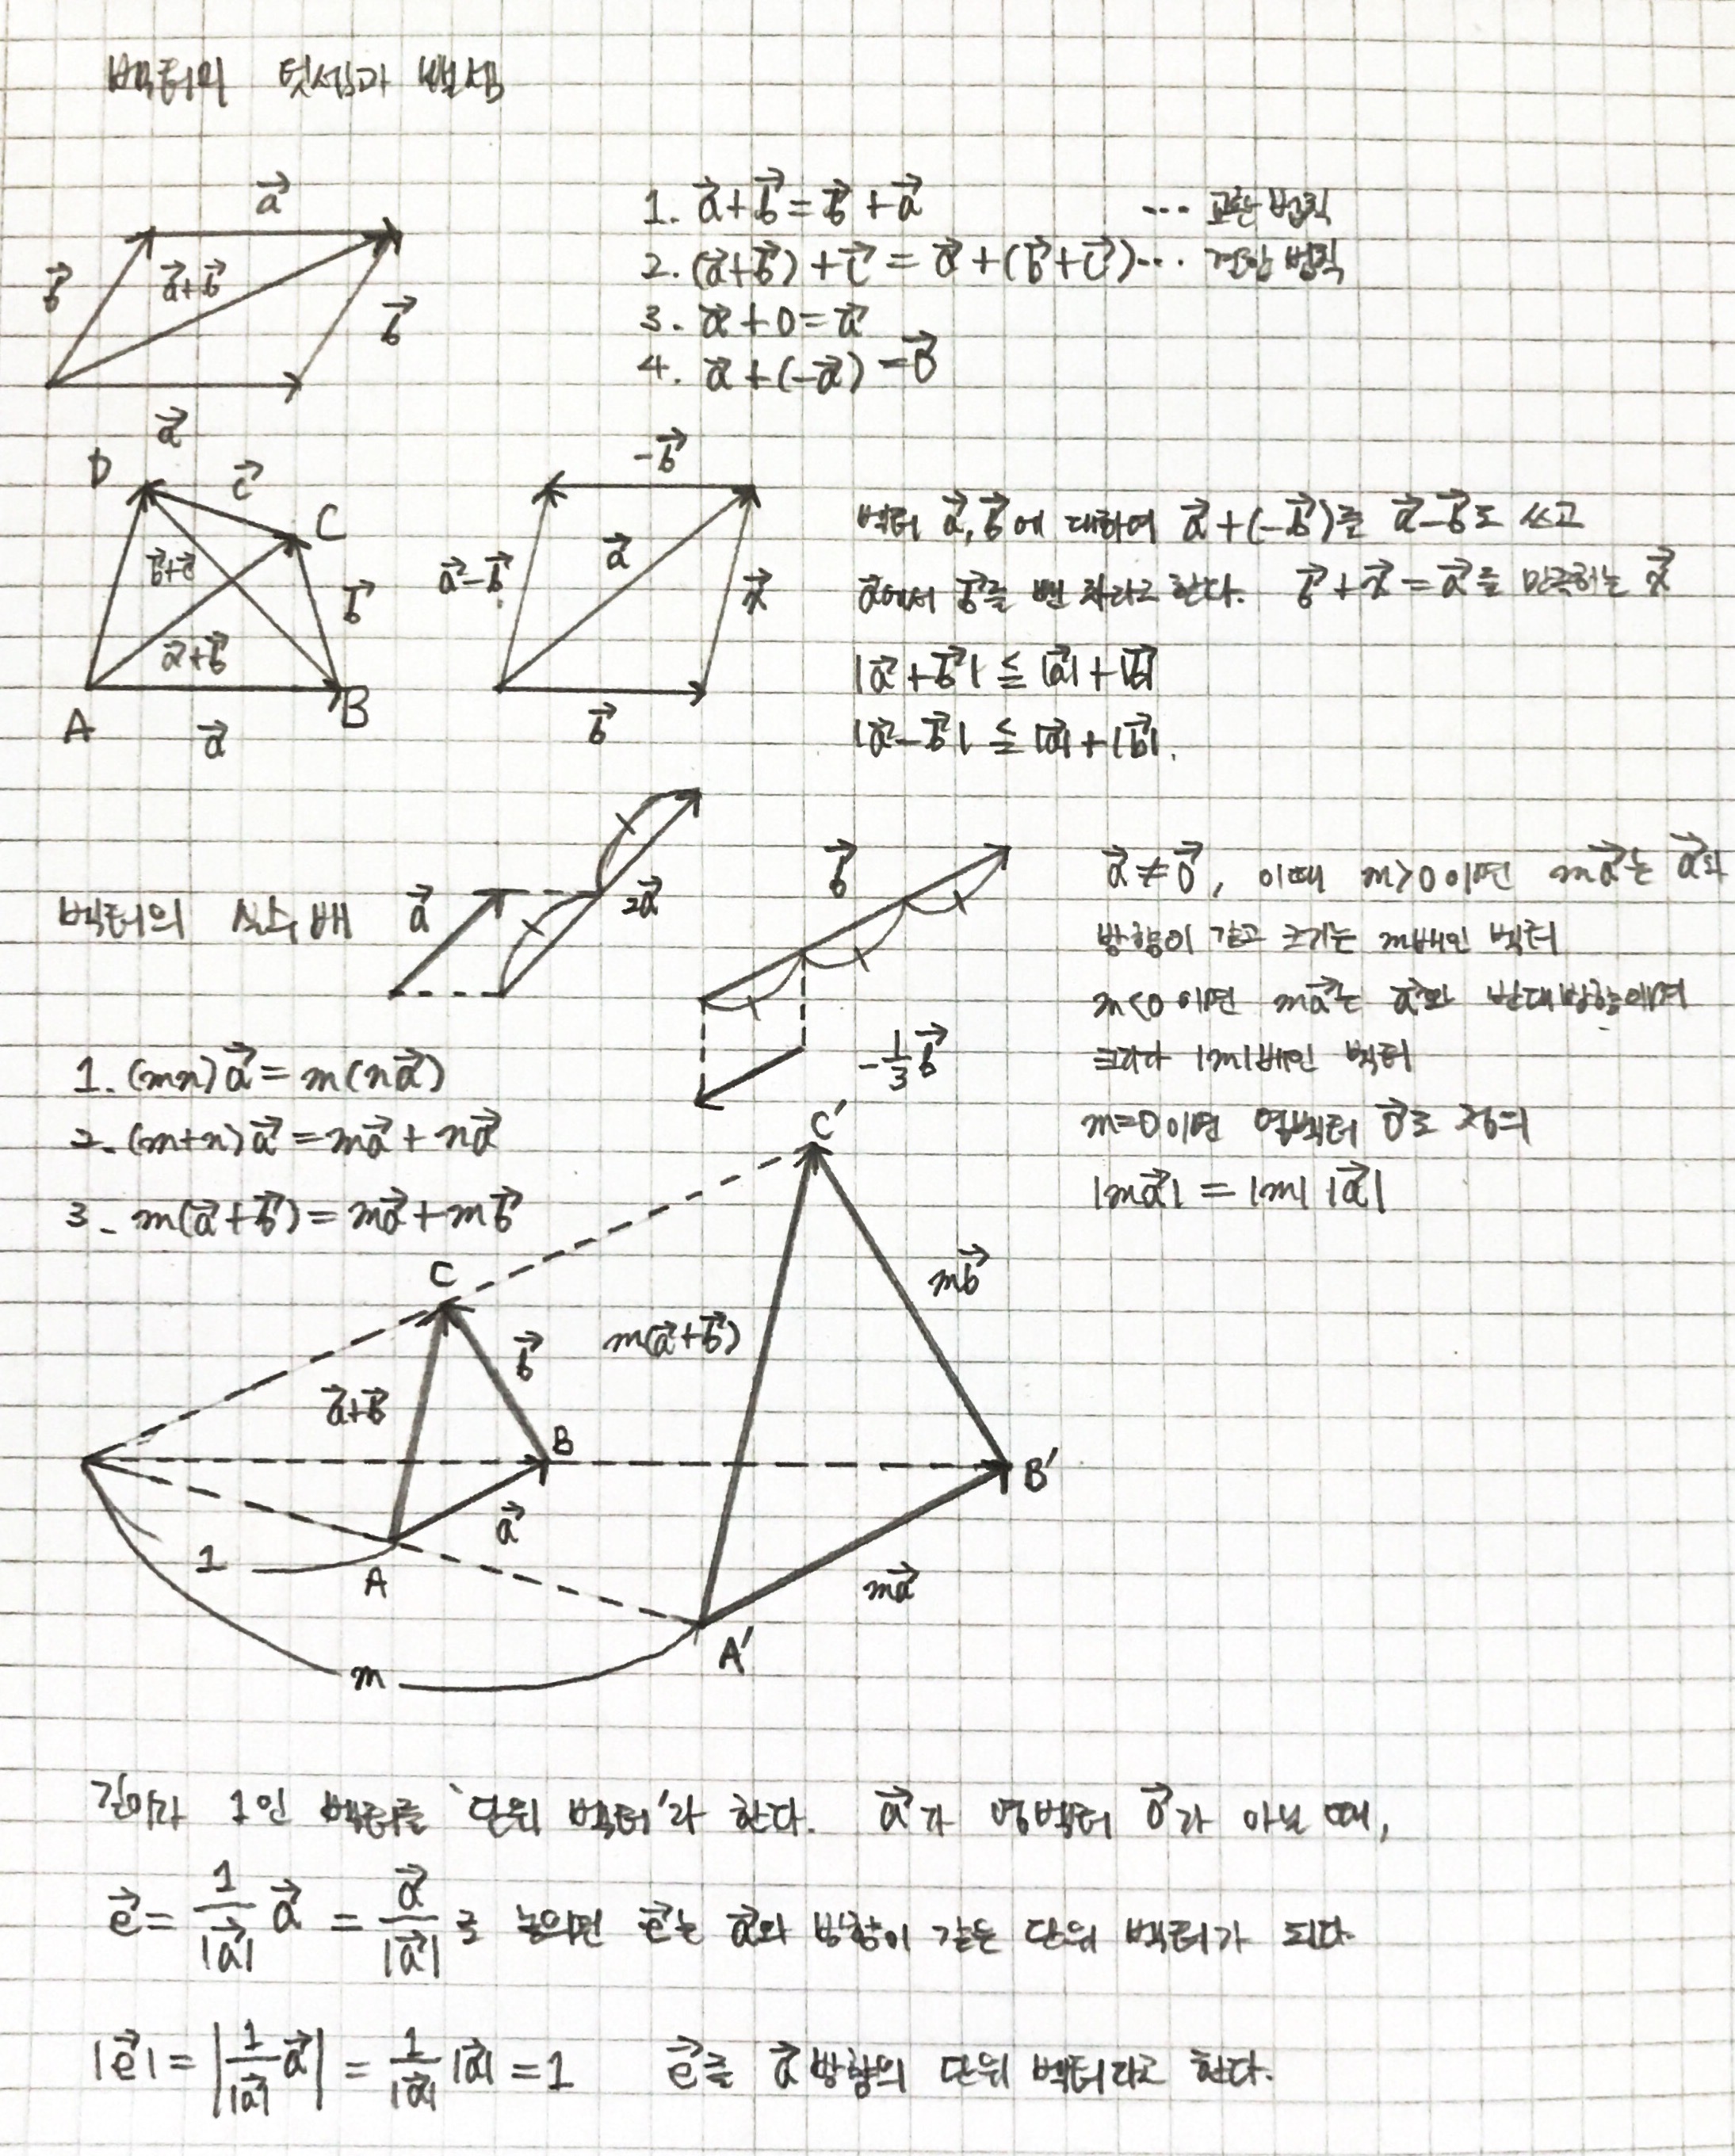 벡터의 덧셈과 뺄셈
a⃗
b⃗
a⃗+b⃗
b⃗
a⃗
1. a⃗+b⃗=b⃗+a⃗ ... 교환법칙
2. (a⃗+b⃗)+c⃗=a⃗+(b⃗+c⃗)... 결합법칙
3. a⃗+0=a⃗
4. a⃗+(-a⃗)=0⃗
D
c⃗
C
b⃗+c⃗
b⃗
a⃗+b⃗
A
B
a⃗
-b⃗
a⃗-b⃗
a⃗
x⃗
b⃗
벡터 a⃗, b⃗에 대하여 a⃗+(-b⃗)를 a⃗-b⃗로 쓰고
a⃗에서 b⃗를 뺀 차라고 한다. b⃗+x⃗=a⃗를 만족하는 x⃗
|a⃗+b⃗| ≦ |a⃗|+|b⃗|
|a⃗-b⃗| ≦ |a⃗|+|b⃗|.
벡터의 실수배
a⃗
2a⃗
b⃗
-1/3 b⃗
a⃗≠0⃗, 이때 m>0이면 ma⃗는 a⃗와
방향이 같고 크기는 m배인 벡터
m<0이면 ma⃗는 a⃗와 반대방향이며
크기가 |m|배인 벡터
m=0이면 영벡터 0⃗로 정의
|ma⃗| = |m| |a⃗|
1. (mn)a⃗=m(na⃗)
2. (m+n)a⃗=ma⃗+na⃗
3. m(a⃗+b⃗)=ma⃗+mb⃗
C'
C
mb⃗
m(a⃗+b⃗)
b⃗
a⃗+b⃗
B
B'
a⃗
1
A
ma⃗
A'
m
길이가 1인 벡터를 '단위 벡터'라 한다. a⃗가 영벡터 0⃗가 아닐 때,
e⃗= 1/|a⃗| a⃗ = a⃗/|a⃗| 로 놓으면 e⃗는 a⃗와 방향이 같은 단위 벡터가 되다.
|e⃗|=|1/|a⃗| a⃗| = 1/|a⃗| |a⃗| =1 e⃗를 a⃗방향의 단위 벡터라고 한다.